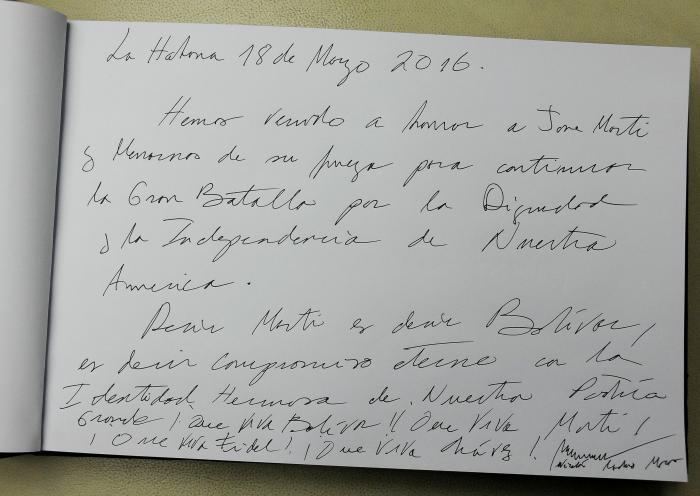 La Habana 18 de Marzo 2016.
Hemos venido a honrar a Jose Marti
y llenarnos de su fuerza para continuar
la Gran Batalla por la Dignidad
y la Independencia de Nuestra
America.
Decir Marti es decir Bolívar,
es decir compromiso eterno con la
Identidad Hermosa de Nuestra Patria
Grande ¡Que viva Bolivar!! Que viva Marti!
¡Que viva Fidel! ¡Que viva Chávez!
Nicolás Maduro Moros